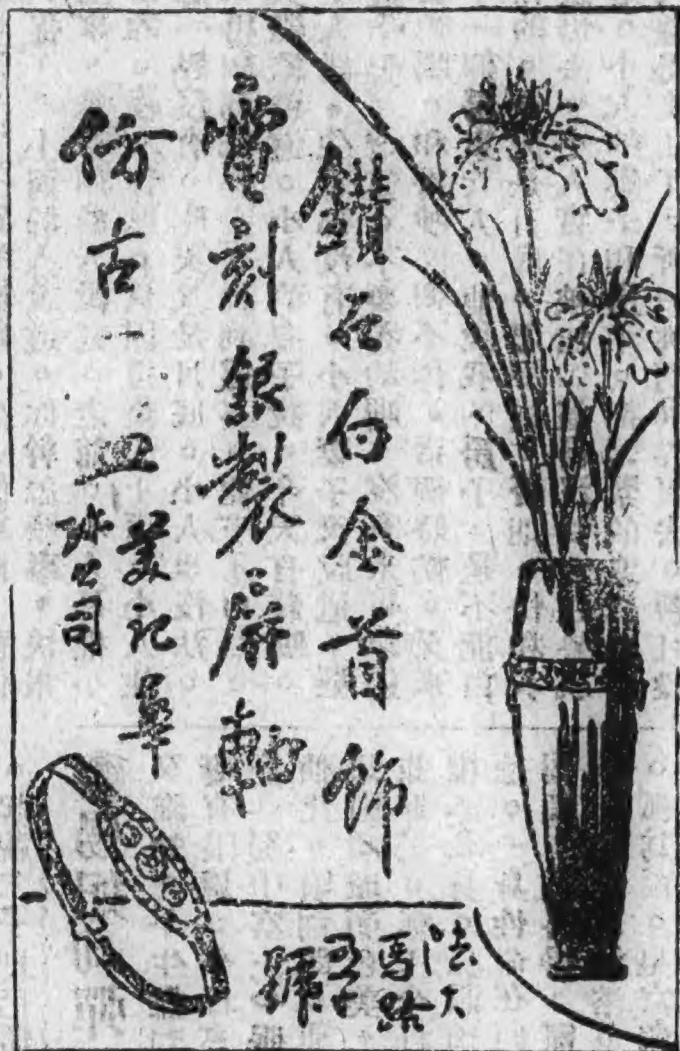 鑽石白金首飾
刻銀製屏軸
仿古 皿
美記
公司
法大
馬路
號